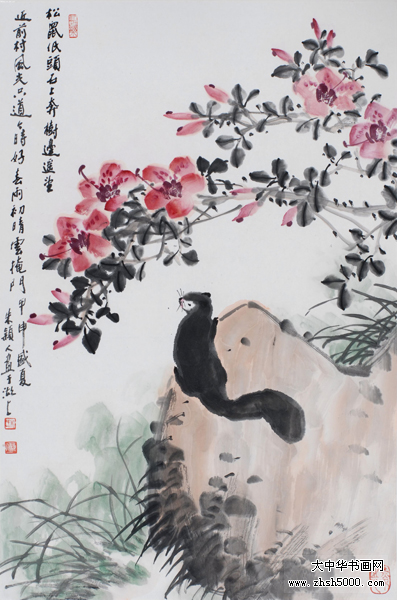 松鼠低頭石上奔樹邊遥望
近前村風光只道時好春雨初晴雲掩門甲申盛夏
朱穎人畫于湖上
大中华书画网
www.zhsh5000.com